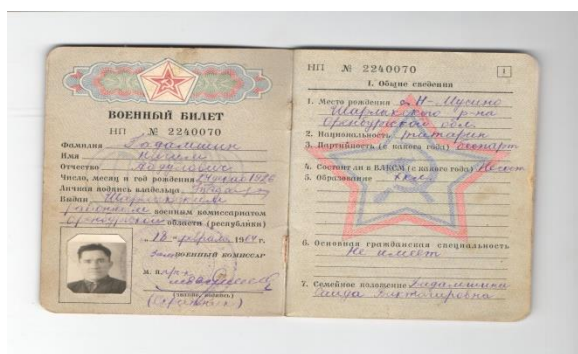 ВОЕННЫЙ БИЛЕТ
НП № 2240070
Фамилия Гадамшин
Имя
Отчество
Число, месяц и год рождения 1926
Личная подпись владельца
Выдан Шарлыкским
районным военным комиссариатом
Оренбургской области (республики)
„16“ февраля 1964 г.
ВОЕННЫЙ КОМИССАР
М. П.
(звание, подпись)
НП № 2240070 1
I. Общие сведения
1. Место рождения с. Н-Мусино
Шарлыкского р-на
Оренбургской обл.
2. Национальность татарин
3. Партийность (с какого года)
4. Состоит ли в ВЛКСМ (с какого года)
5. Образование
6. Основная гражданская специальность
Не имеет
7. Семейное положение Гадамшина